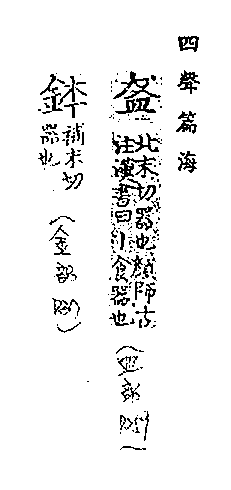 四聲篇海
盋
北末切器也顏師古
注漢書曰小食器也
(皿部
鉢
補末切
器也
(金部